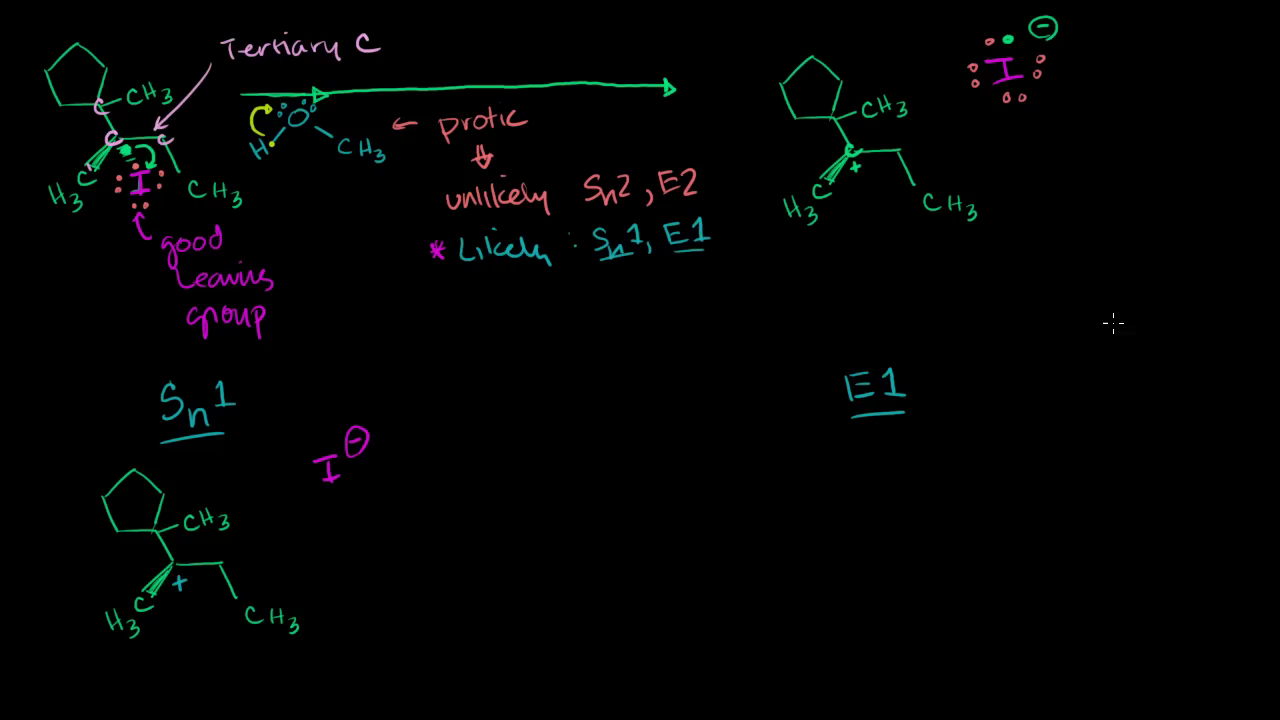 Tertiary C
CH3
C
C C
C
H3
I
CH3
good
leaving
group
H O CH3
← protic
unlikely Sn2, E2
* Likely : Sn1, E1
CH3
C
+
C
H3
CH3
I −
Sn1
I −
CH3
+
C
H3
CH3
E1